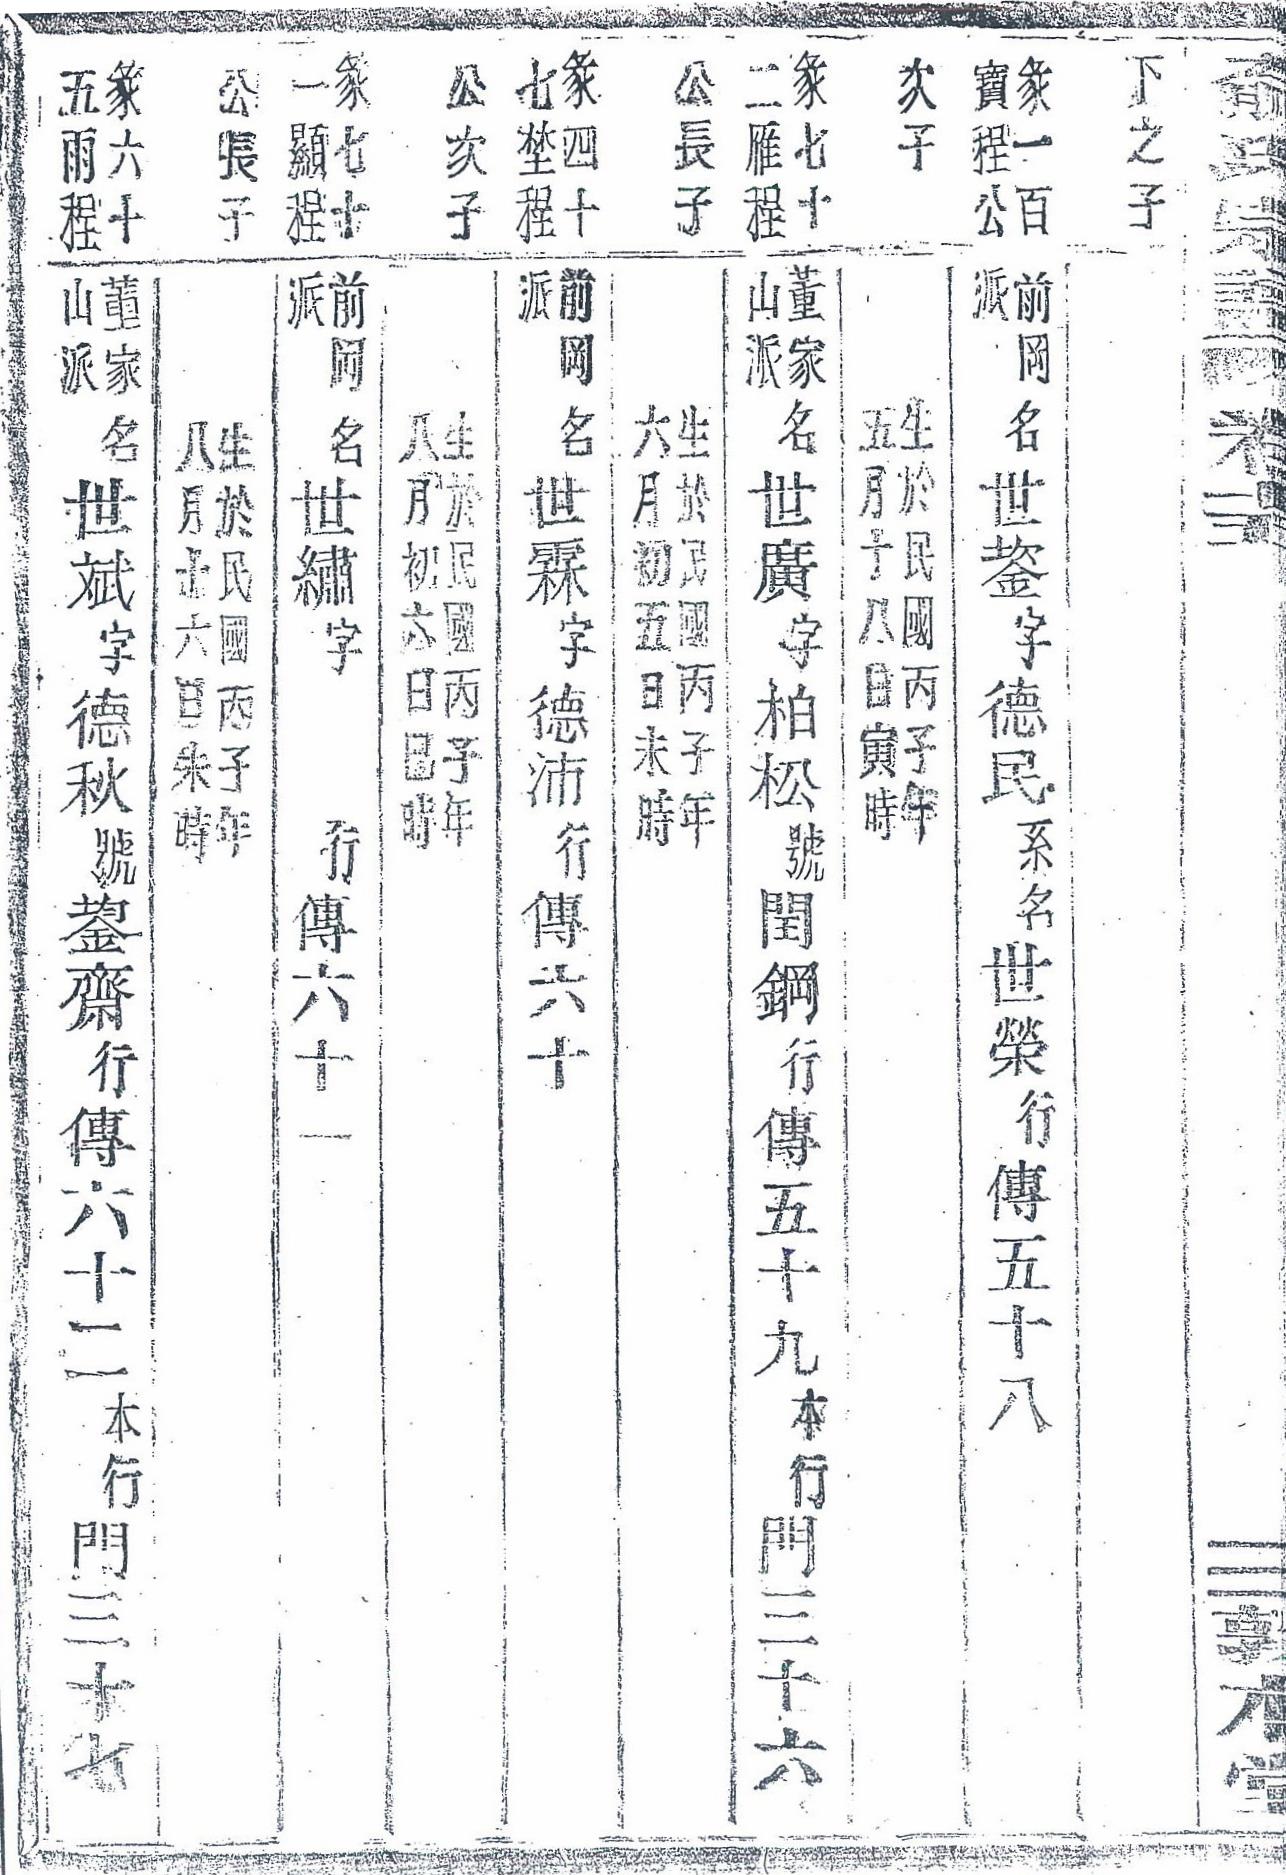 卷三
敦本堂
下之子
篆一百
寶程公
前岡
派
名世蓥字德民系名世榮行傳五十八
次子
生於民國丙子年
五月十八日寅時
篆七十
二雁程
董家
山派
名世廣字柏松號閏鋼行傳五十九本行門三十六
公長子
生於民國丙子年
六月初五日未時
篆四十
七埜程
前岡
派
名世霖字德沛行傳六十
公次子
生於民國丙子年
八月初六日巳時
篆七十
一顯程
前岡
派
名世繡字 行傳六十一
公長子
生於民國丙子年
八月十六日未時
篆六十
五雨程
董家
山派
名世斌字德秋號鋆齋行傳六十二本行門三十七